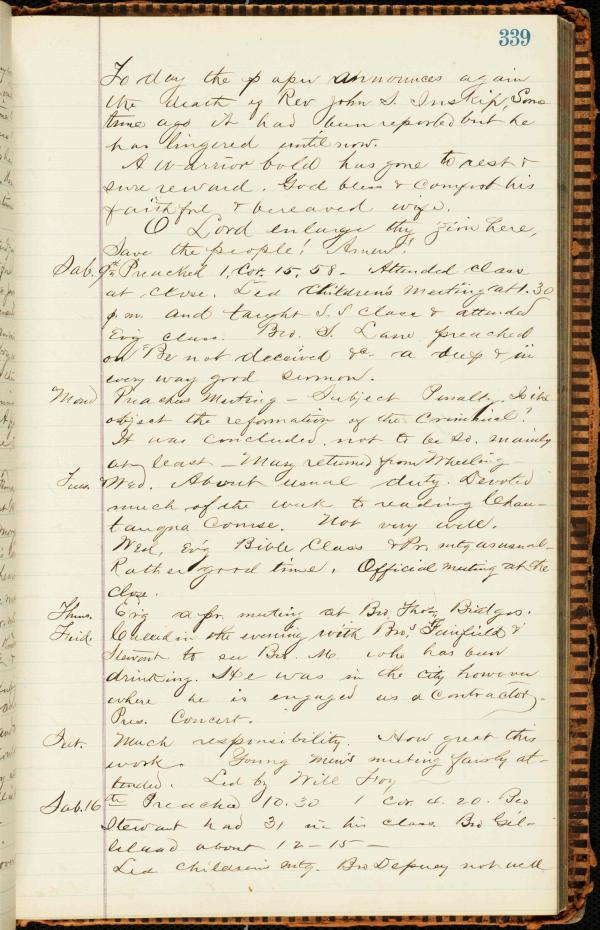 339
To day the paper announces again
the death of Rev John S. Inskip, Some
time ago it had been reported but he
has lingered until now.
A warrior bold has gone to rest &
sure reward. God bless & comfort his
faithful & bereaved wife.
O Lord enlarge thy Zion here,
Save the people! Amen!
Sab. 9th Preached 1. Cor. 15, 58 - Attended class
at close. Led Children's Meeting at 1.30
p.m. and taught S. S Class & attended
Ev'g class. Bro. S. Lane preached
on "Be not deceived &c. a deep & in
every way good sermon.
Mond Preachers Meeting - Subject Penalty. Is its
object the reformation of the Criminal?
It was concluded not to be so, mainly
at least - Mary returned from Wheeling
Tues. Wed. About usual duty. Devoted
much of the week to reading Chau-
tauqua Course. Not very well.
Wed, Ev'g Bible Class & Pr. mtg as usual -
Rather good time. Official meeting at the
close.
Thurs. Ev'g a pr. meeting at Bro Thos.
Frid. Called in the evening with Bros Fairfield &
Stewart to see Bro. M. who has been
drinking. He was in the city however
where he is engaged as a Contractor -
Pres. Concert.
Sat. Much responsibility. How great this
work. Young Men's meeting fairly at-
tended. Led by Will Foy
Sab. 16th Preached 10.30 1 Cor. 4. 20. Bro
Stewart had 31 in his class. Bro Gil-
leland about 12 - 15 -
Led Children's mtg. Bro Depuey not well